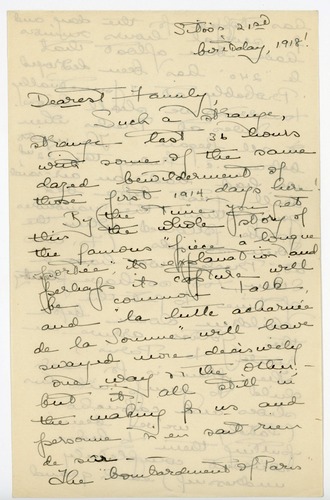 Sitio's 21st
birthday, 1918!
Dearest Family,
Such a strange,
strange last 36 hours
with some of the same
dazed bewilderment of
those first 1914 days here!
By the time you get
this the whole story of
the famous "pièce à longue
portée" its explanation and
perhaps its capture will
be common talk
and "la lutte acharnée
de la Somme" will have
swayed more decisively
one way or the other -
but it's all still in
the making for us and
personne n'en sait rien
de sûr -
The "bombardment of Paris"